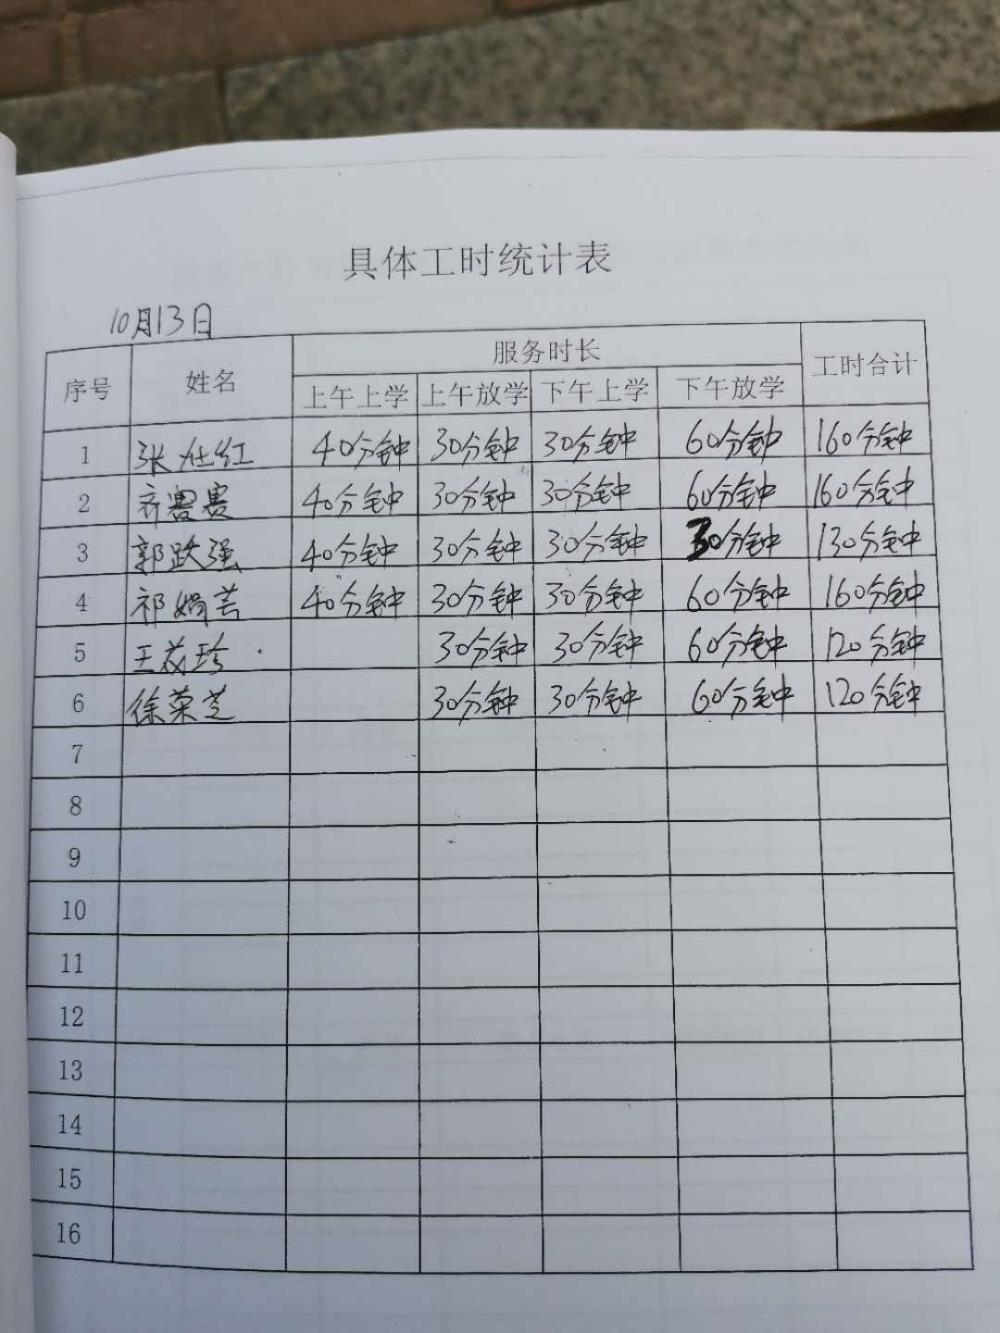 具体工时统计表
10月13日
序号 姓名 服务时长 工时合计
上午上学 上午放学 下午上学 下午放学
1 张仕红 40分钟 30分钟 30分钟 60分钟 160分钟
2 齐赛赛 40分钟 30分钟 30分钟 60分钟 160分钟
3 郭跃强 40分钟 30分钟 30分钟 30分钟 130分钟
4 祁娟芸 40分钟 30分钟 30分钟 60分钟 160分钟
5 王花珍 30分钟 30分钟 60分钟 120分钟
6 徐荣芝 30分钟 30分钟 60分钟 120分钟
7
8
9
10
11
12
13
14
15
16